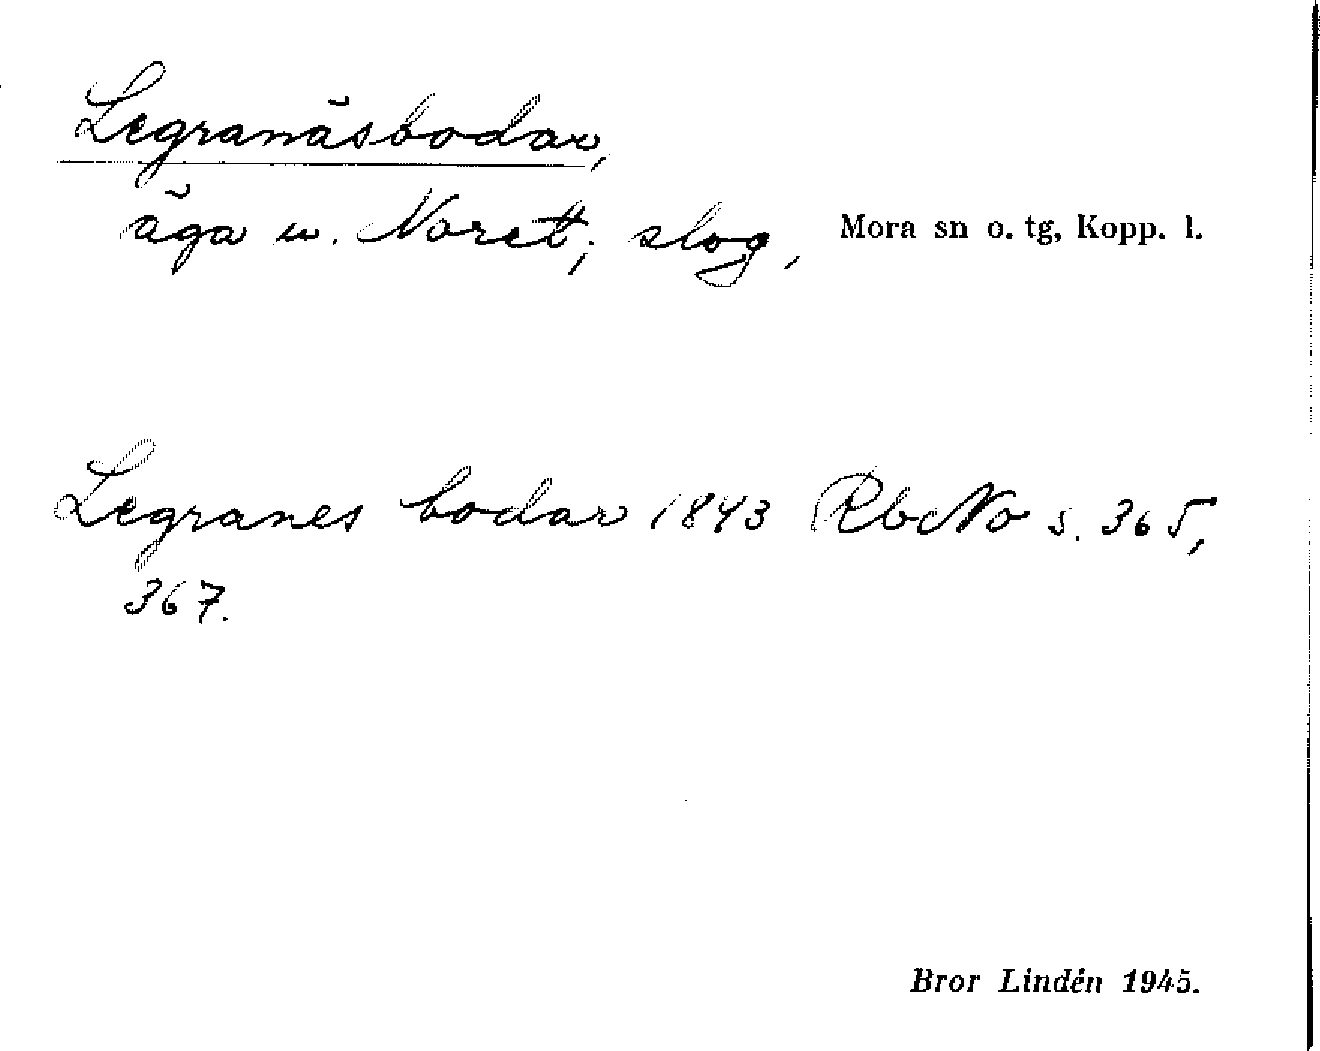 Legranäsbodar,
äga u. Noret; slog, Mora sn o. tg, Kopp. l.
Legranes bodar 1843 RbNo s. 365,
367.
Bror Lindén 1945.